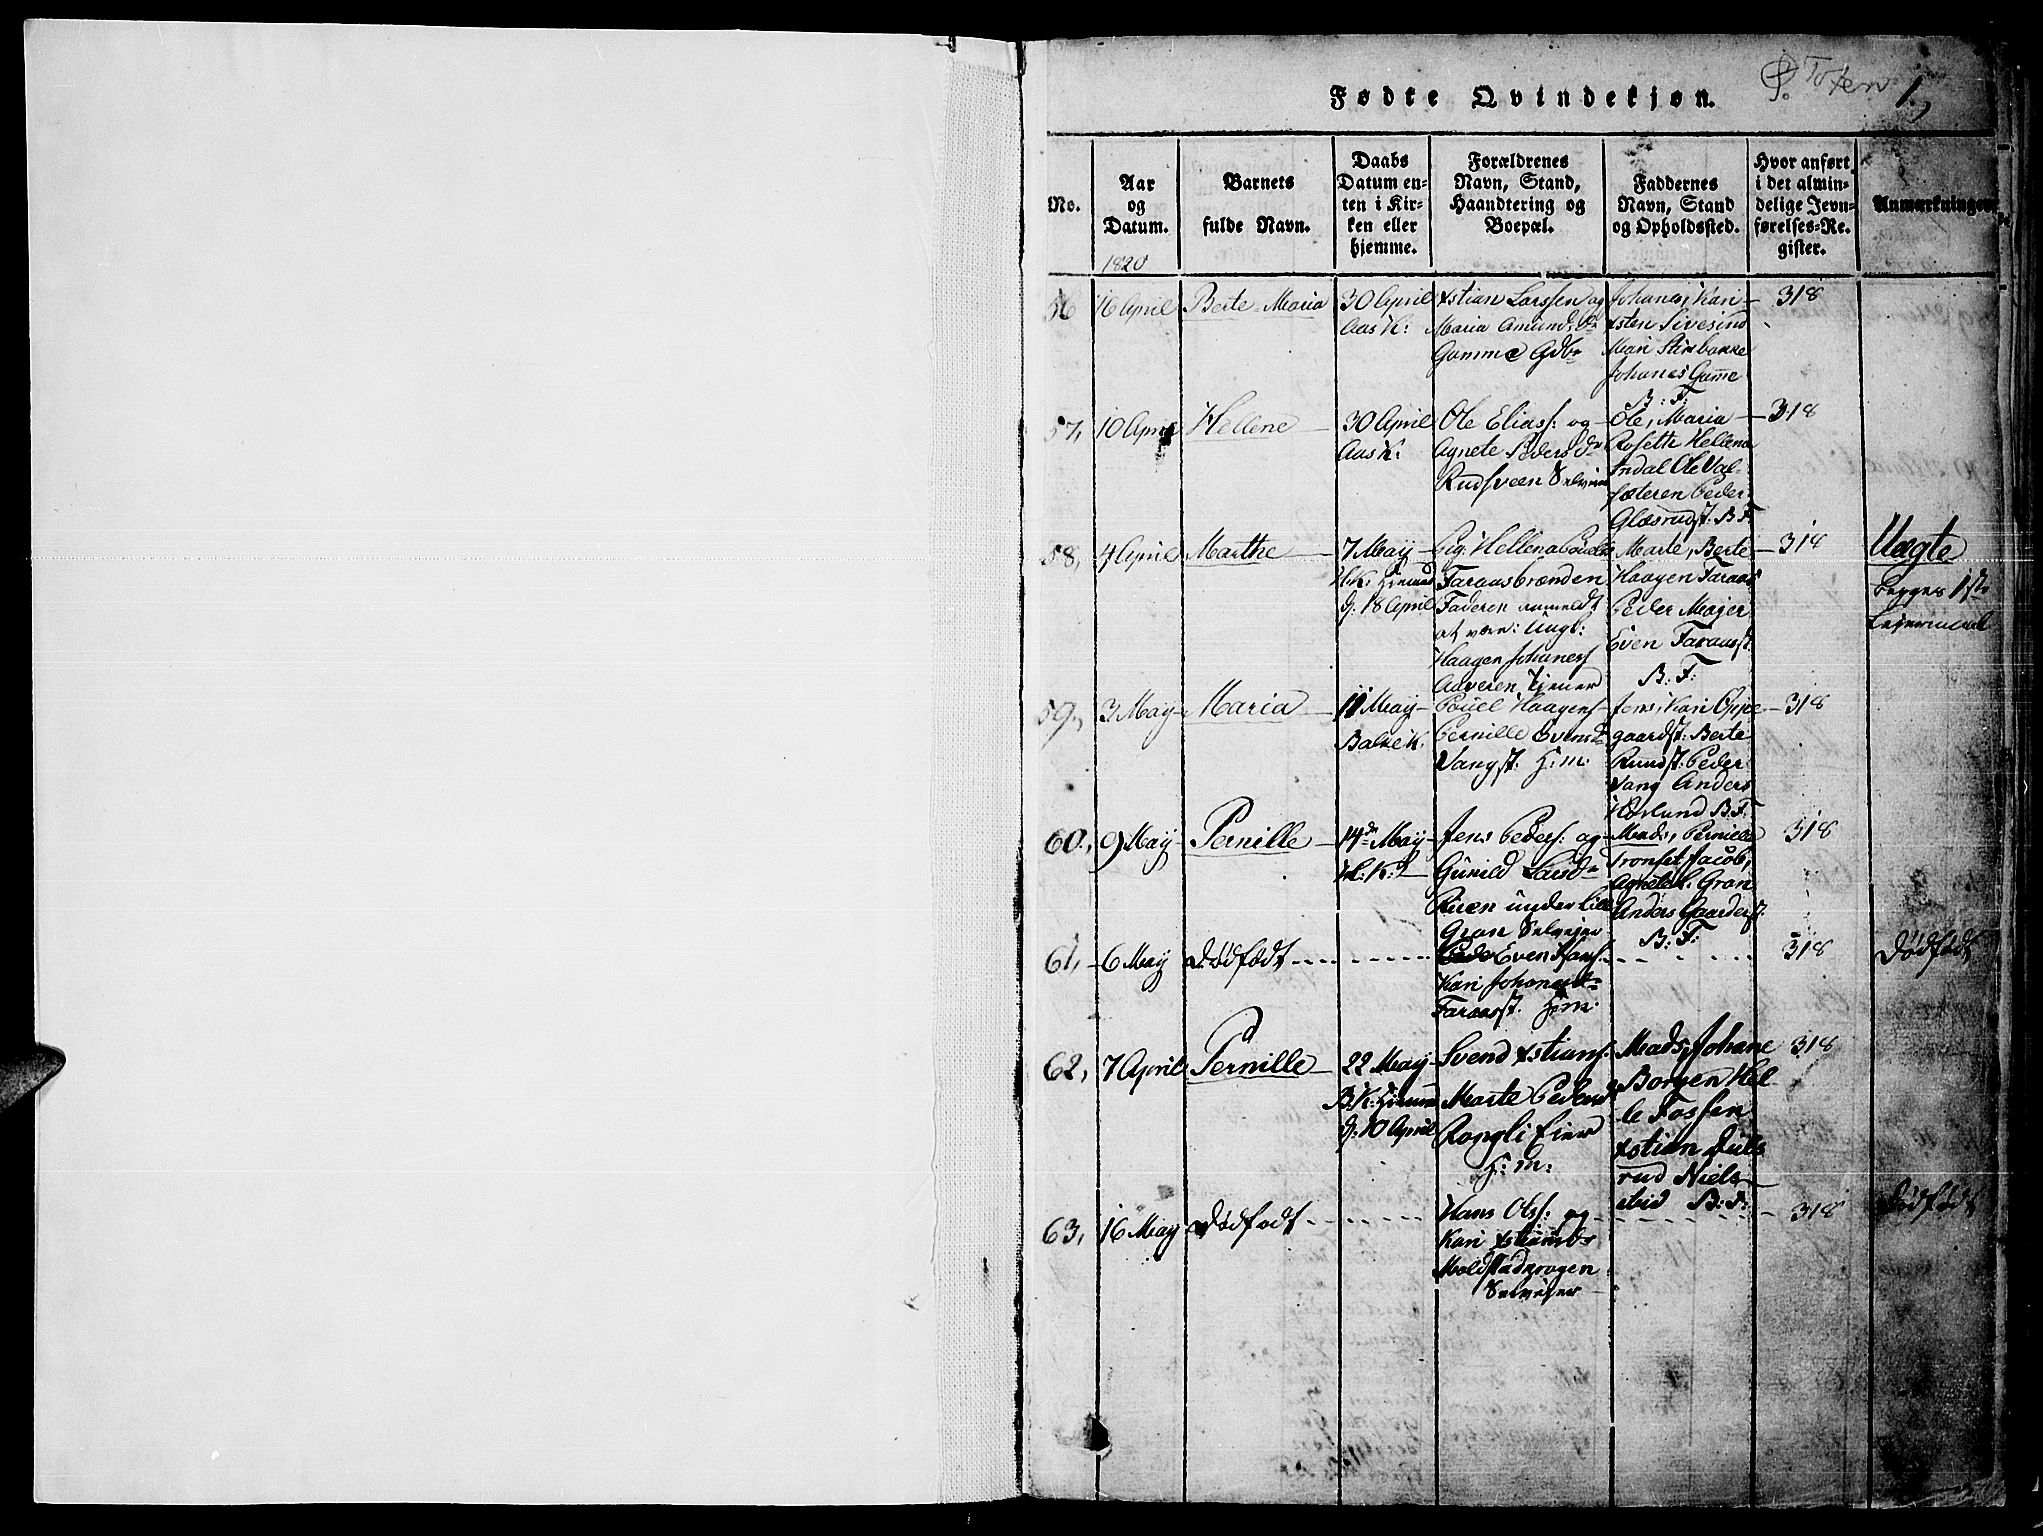 Ø. Toten
1,
Fødte Qvindekjøn.
No.
Aar
og
Datum.
Barnets
fulde Navn.
Daabs
Datum en-
ten i Kir-
ken eller
hjemme.
Forældrenes
Navn, Stand,
Haandtering og
Boepæl.
Faddernes
Navn, Stand
og Opholdssted.
Hvor anført
i det almin-
delige Jevn-
førelses-Re-
gister.
Anmærkninger
1820
56
16 April
Berte Maria
30 April
Aas K:
Xstian Larssen og
Maria Amunds D
Gamme Gdbr
Johanes, Kari
Xsten Sivesind
Mari Stenbakke
Johanes Game
B: F:
318
57,
10 April
Hellene
30 April
Aas K:
Ole Elias: og
Agnete Peders Dr
Rudsveen Selveier
Ole, Maria
Roseth Hellena
Indal Ole Val-
sæteren Peder
Glæsrudst: B F
318
58,
4 April
Marthe
7 May
H.K: Hiemd
d: 18 April
Pig: Hellena Pouels
Faraasbrænden
Faderen anmeldt
at være: Ungk:
Haagen Johanesf
Aaveren, tjener
Marte, Berte
Haagen Faraas
Peder Majer
Even Faraasst.
B: F:
318
Uægte
begges 1ste
Leiermaal
59,
3 May
Maria
11 May
Balke K.
Pouel Haagens
Pernille Svensd
Vangst. H: m:
Jens, Kari Oppe
gaardst: Berte
Rundst. Peder
Vang Anders
Hørlund B: F:
318
60,
9 May
Pernille
14de May
H: K:
Jens Peders: og
Gunild Larsd
Ruen under Lille
Gran Selveier
Mads, Pernille
Tronset Jacob,
Agnete L. Gran
Anders Gaarderst.
B: F:
318
61,
6 May
Dødfødt
Even Hans.
Kari Johanesd
Faraasst. H: m:
318
Dødfødt
62,
7 April
Pernille
22 May
B.K: Hiemd
d: 10 April
Svend Xstians.
Marte Pedersd
Rongli Eier
H: m:
Mads, Johane
Borgen Hel
le Fossen
Xstian Duls
rud Niels
ibid B: F:
318
63,
16 May
Dødfødt
Hans Ols: og
Kari Xstiansdr
Moldstadkrogen
Selveier
318
Dødfødt